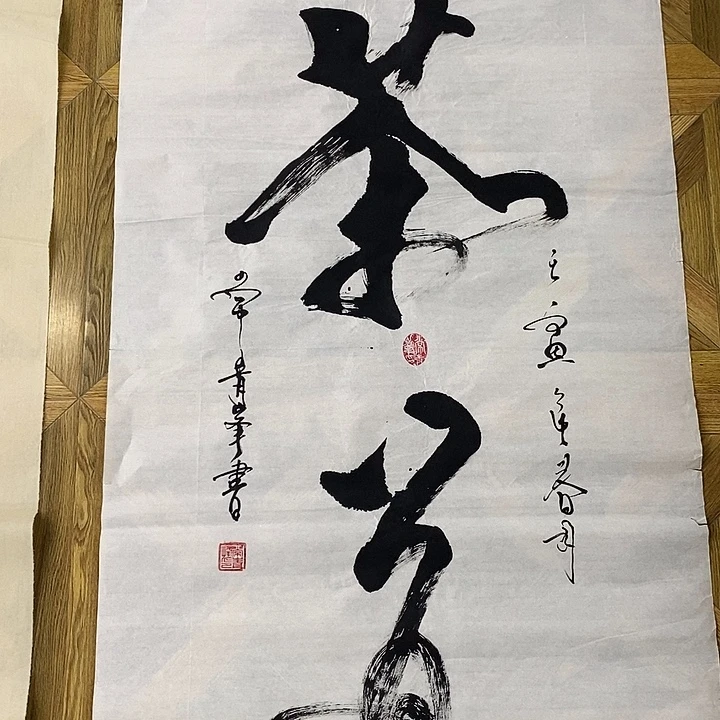 壬寅年春月
茶道
常青峯書